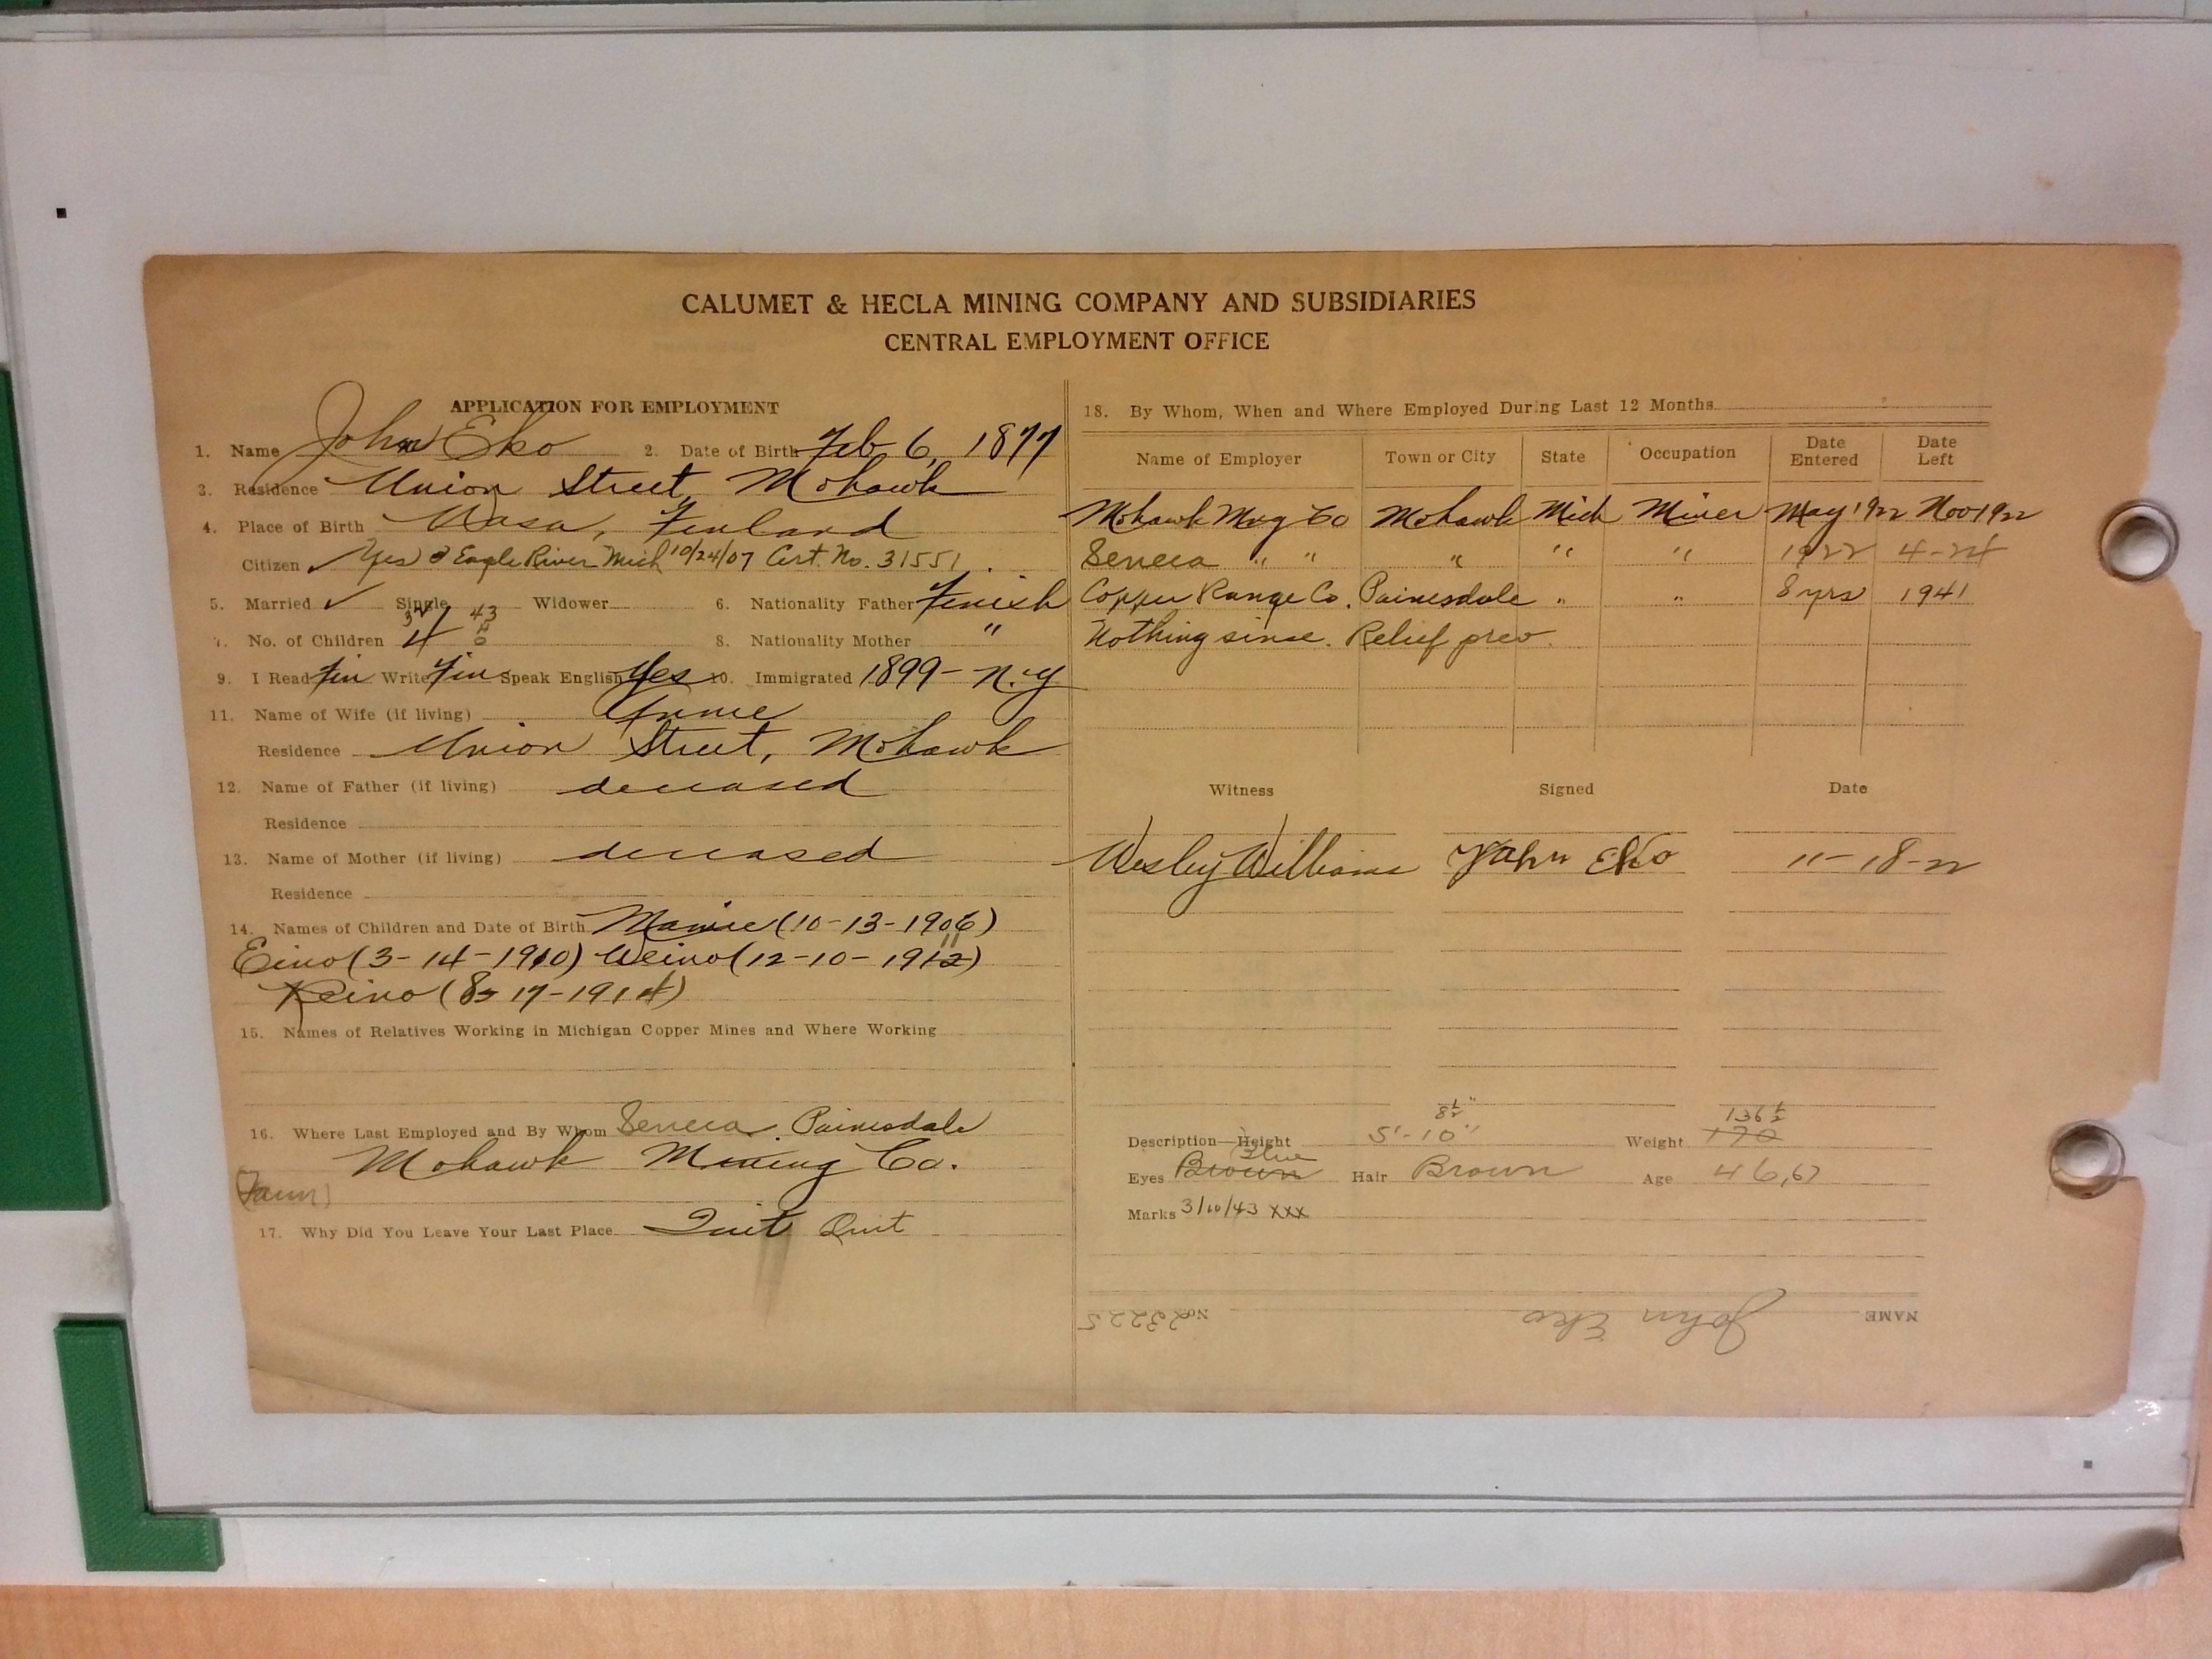 CALUMET & HECLA MINING COMPANY AND SUBSIDIARIES
CENTRAL EMPLOYMENT OFFICE
APPLICATION FOR EMPLOYMENT
1. Name John Eko 2. Date of Birth Feb 6, 1877
3. Residence Union Street, Mohawk
4. Place of Birth Wasa, Finland
Citizen ✓ Yes @ Eagle River Mich 10/24/07 Cert. No. 31551
5. Married ✓ Single Widower 6. Nationality Father Finish
7. No. of Children 4 43 8. Nationality Mother "
9. I Read Fin Write Fin Speak English Yes 10. Immigrated 1899 - N.Y
11. Name of Wife (if living) Annie
Residence Union Street, Mohawk
12. Name of Father (if living) deceased
Residence
13. Name of Mother (if living) deceased
Residence
14. Names of Children and Date of Birth Mamie (10-13-1906)
Eino (3-14-1910) Weino (12-10-1912) 11
Reino (8-17-1914)
15. Names of Relatives Working in Michigan Copper Mines and Where Working
16. Where Last Employed and By Whom Seneca. Painesdale
Mohawk Mining Co.
17. Why Did You Leave Your Last Place Quit Quit
18. By Whom, When and Where Employed During Last 12 Months
Name of Employer Town or City State Occupation Date Entered Date Left
Mohawk Mng Co Mohawk Mich Miner May 1922 Nov 1922
Seneca " " " " " 1922 4-24
Copper Range Co. Painesdale " " 8 yrs 1941
Nothing since. Relief prev.
Witness Signed Date
Wesley Williams John Eko 11-18-22
8½" 136½
Description—Height 5'-10" Weight 170
Blue
Eyes Brown Hair Brown Age 46, 67
Marks 3/10/43 xxx
NAME John Eko No. 23225